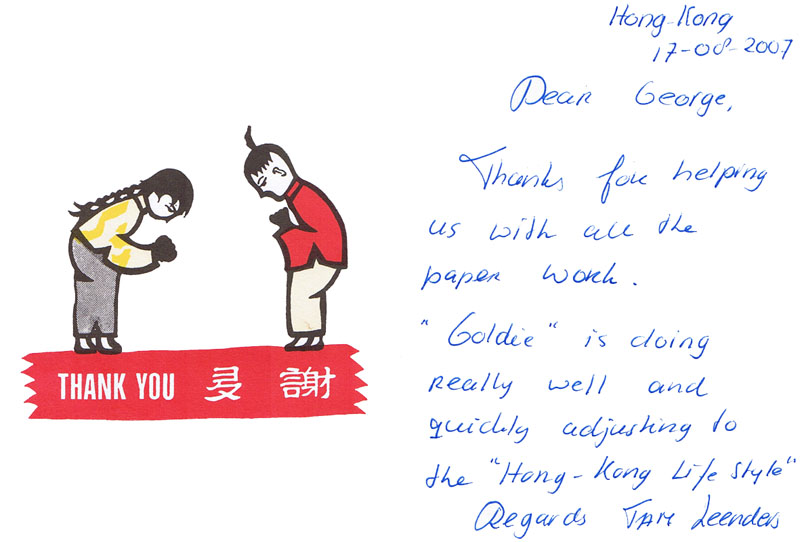 THANK YOU 多謝
Hong-Kong
17-08-2007
Dear George,
Thanks for helping
us with all the
paper work.
"Goldie" is doing
really well and
quickly adjusting to
the "Hong-Kong Life Style"
Regards TAM Leenders